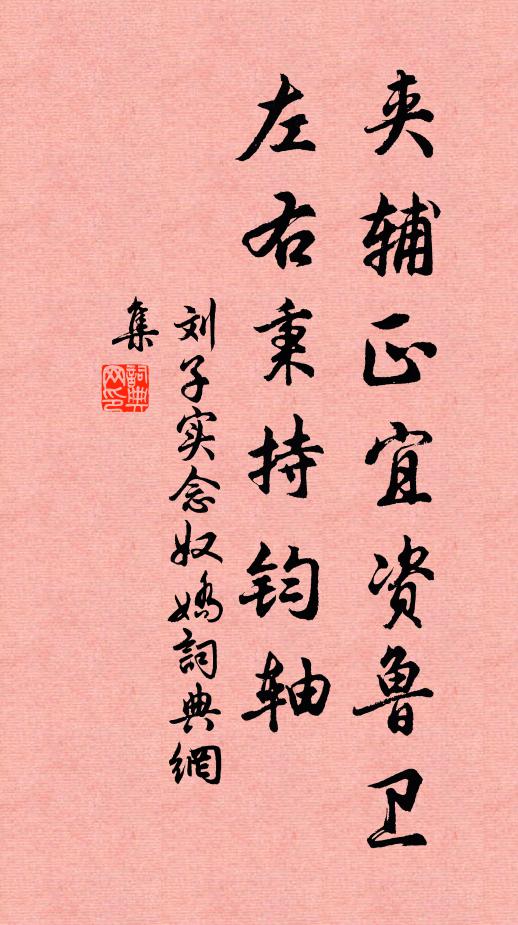 夹辅正宜资鲁卫
左右秉持钧轴
刘子实念奴娇詞典網
集
詞典網印